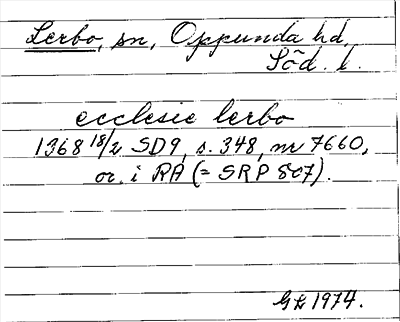 Lerbo, sn, Oppunda hd,
Söd. l.
ecclesie lerbo
1368 18/2 SD9, s. 348, nr 7660,
or. i RA (= SRP 807).
GL 1974.